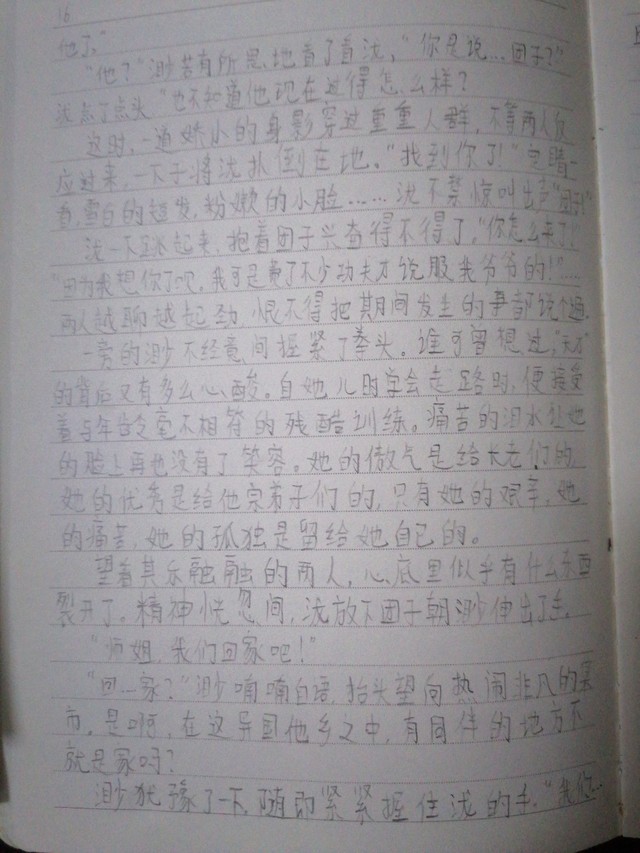 16
他了。"
"他？"渺若有所思地看了看泷，"你是说…团子？"
泷点了点头，"也不知道他现在过得怎么样？
这时，一道娇小的身影穿过重重人群，不等两人反
应过来，一下子将泷扑倒在地。"找到你了！"定睛一
看，雪白的短发，粉嫩的小脸……泷不禁惊叫出声"团子！"
泷一下跳起来，抱着团子兴奋得不得了，"你怎么来了！"
"因为我想你了呗，我可是费了不少功夫才说服我爷爷的！"……
两人越聊越起劲，恨不得把其间发生的事都说个遍。
一旁的渺不经意间握紧了拳头。谁可曾想过，"天才"
的背后又有多么心酸。自她儿时学会走路时，便接受
着与年龄毫不相符的残酷训练。痛苦的泪水让她
的脸上再也没有了笑容。她的傲气是给长老们的，
她的优秀是给他宗弟子们的，只有她的艰辛，她
的痛苦，她的孤独是留给她自己的。
望着其乐融融的两人，心底里似乎有什么东西
裂开了。精神恍忽间，泷放下团子朝渺伸出了手。
"师姐，我们回家吧！"
"回…家？"渺喃喃自语，抬头望向热闹非凡的集
市，是啊，在这异国他乡之中，有同伴的地方不
就是家吗？
渺犹豫了一下，随即紧紧握住泷的手，"我们…